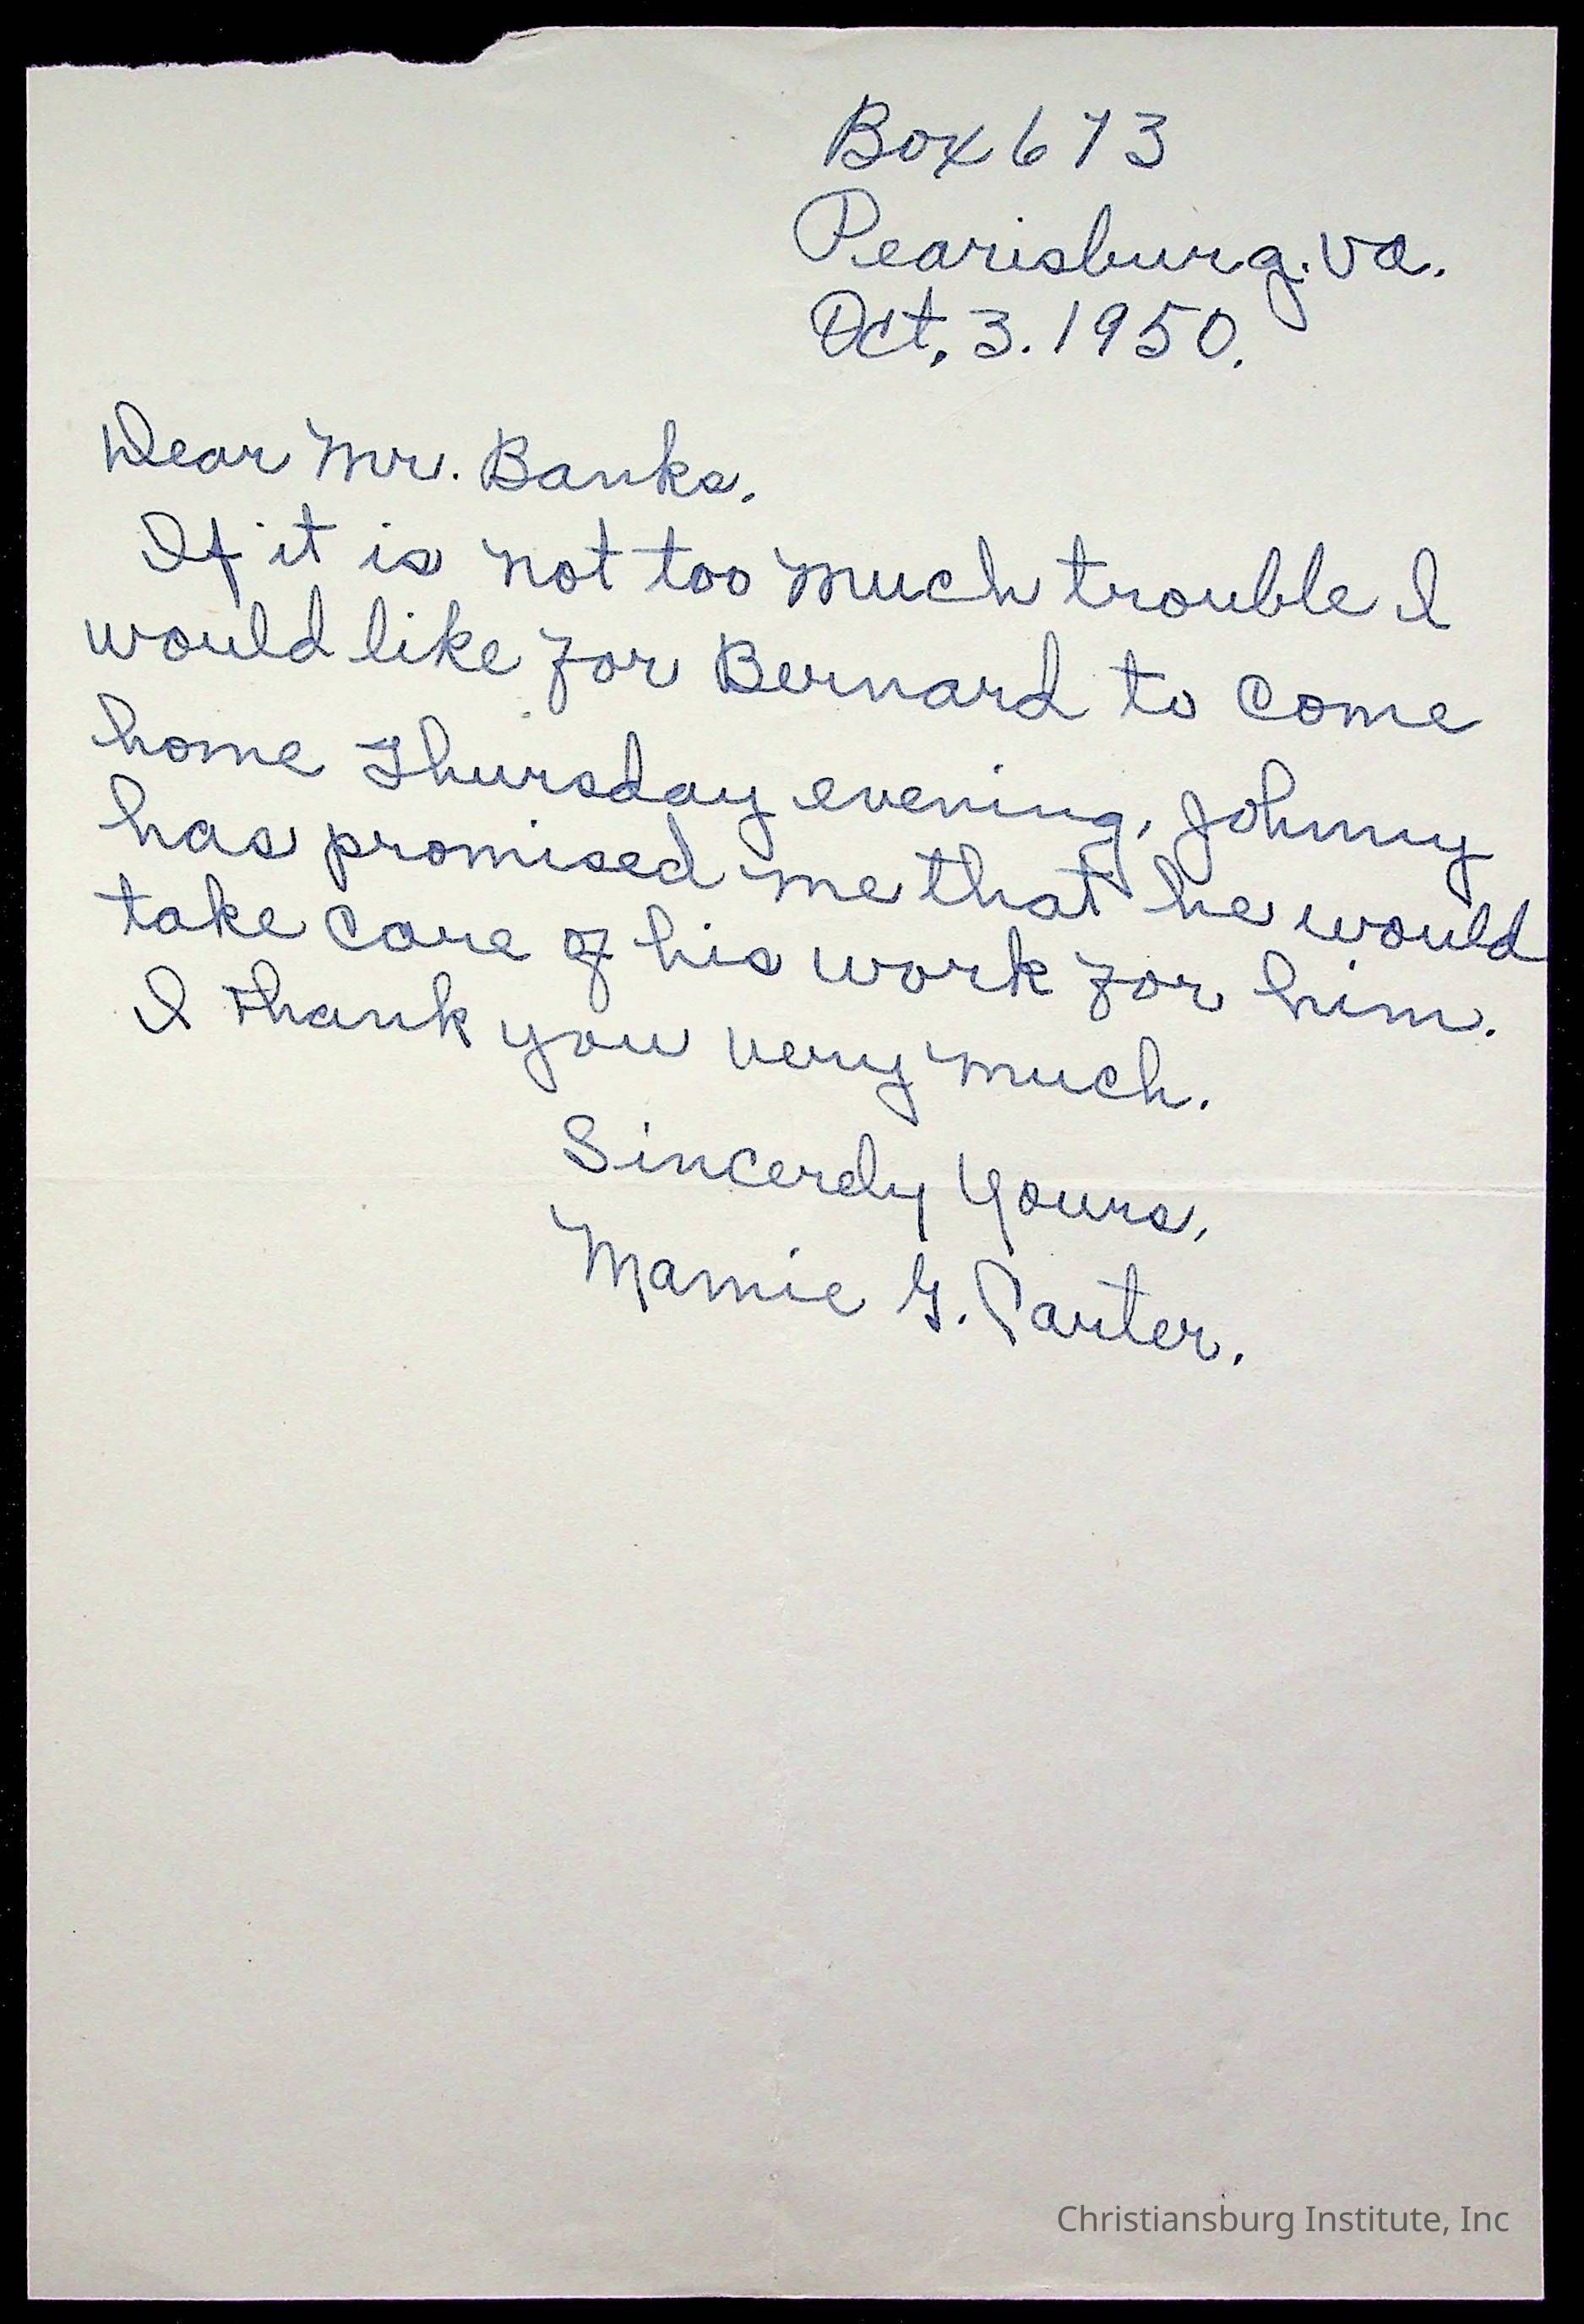 Box 673
Pearisburg. Va.
Oct. 3. 1950.
Dear Mr. Banks.
If it is not too much trouble I
would like for Bernard to come
home Thursday evening, Johnny
has promised me that he would
take care of his work for him.
I thank you very much.
Sincerely Yours,
Mamie G. Carter.
Christiansburg Institute, Inc